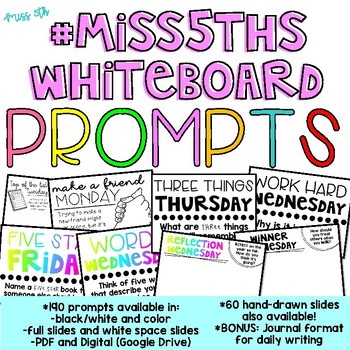 miss 5th
#miss5ths
whiteboard
PROMPTS
Top of the List
Tuesday
make a friend
MONDAY
Trying to make a
new friend might
THREE THINGS
THURSDAY
What are THREE things
WORK HARD
Wednesday
Why is it
FIVE ST
FRID
Name a five star book
someone else should
WORD
Wednes
Think of five w
REFLECTION
WEDNESDAY
WINNER
How should
you treat
others when
you win?
*190 prompts available in:
-black/white and color
-full slides and white space slides
-PDF and Digital (Google Drive)
*60 hand-drawn slides
also available!
*BONUS: Journal format
for daily writing